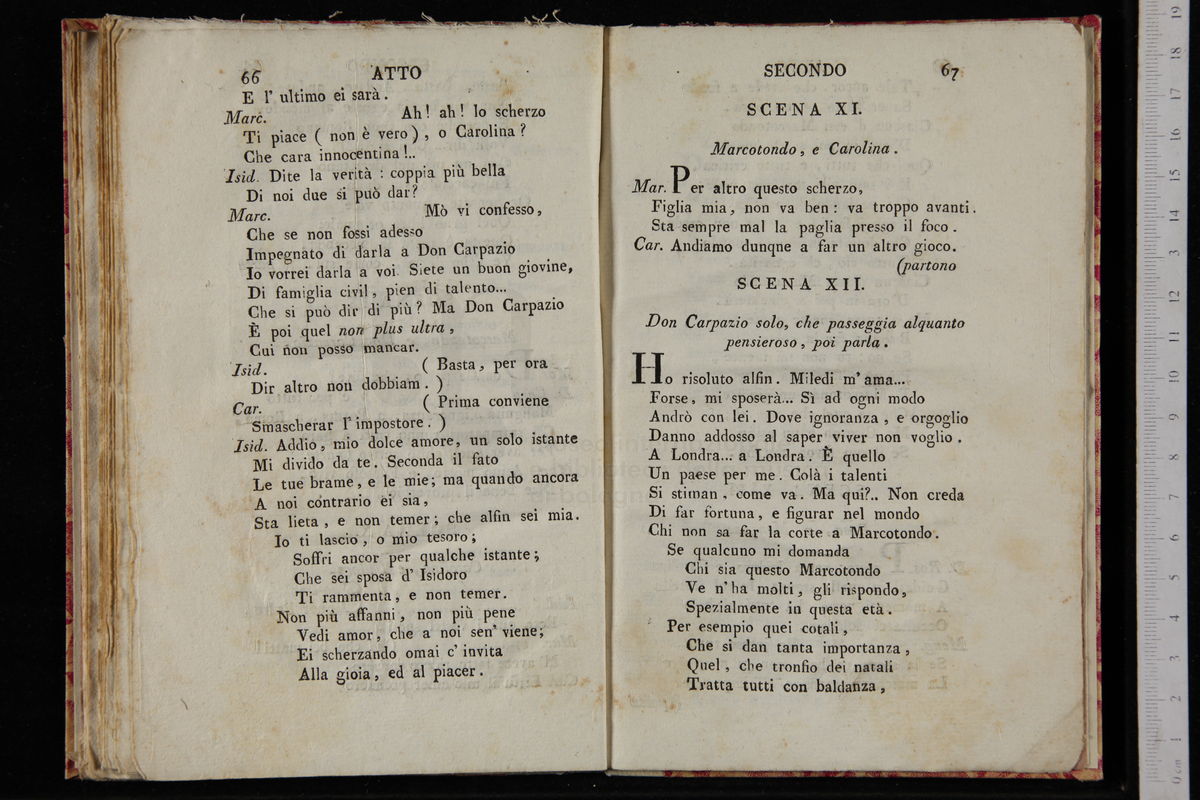 66 ATTO
E l' ultimo ei sarà.
Marc. Ah! ah! lo scherzo
Ti piace ( non è vero ) , o Carolina ?
Che cara innocentina !..
Isid. Dite la verità : coppia più bella
Di noi due si può dar ?
Marc. Mò vi confesso ,
Che se non fossi adesso
Impegnato di darla a Don Carpazio
Io vorrei darla a voi. Siete un buon giovine,
Di famiglia civil , pien di talento...
Che si può dir di più ? Ma Don Carpazio
È poi quel non plus ultra ,
Cui non posso mancar.
Isid. ( Basta , per ora
Dir altro non dobbiam . )
Car. ( Prima conviene
Smascherar l' impostore . )
Isid. Addio , mio dolce amore, un solo istante
Mi divido da te . Seconda il fato
Le tue brame , e le mie ; ma quando ancora
A noi contrario ei sia ,
Sta lieta , e non temer ; che alfin sei mia.
Io ti lascio , o mio tesoro ;
Soffri ancor per qualche istante ;
Che sei sposa d' Isidoro
Ti rammenta , e non temer.
Non più affanni , non più pene
Vedi amor , che a noi sen' viene ;
Ei scherzando omai c' invita
Alla gioia , ed al piacer .
SECONDO 67
SCENA XI.
Marcotondo , e Carolina .
Mar. Per altro questo scherzo,
Figlia mia , non va ben : va troppo avanti .
Sta sempre mal la paglia presso il foco .
Car. Andiamo dunqne a far un altro gioco.
(partono
SCENA XII.
Don Carpazio solo, che passeggia alquanto
pensieroso , poi parla .
Ho risoluto alfin . Miledi m' ama...
Forse , mi sposerà... Sì ad ogni modo
Andrò con lei . Dove ignoranza , e orgoglio
Danno addosso al saper viver non voglio .
A Londra... a Londra . È quello
Un paese per me . Colà i talenti
Si stiman , come va . Ma qui?.. Non creda
Di far fortuna , e figurar nel mondo
Chi non sa far la corte a Marcotondo .
Se qualcuno mi domanda
Chi sia questo Marcotondo
Ve n' ha molti , gli rispondo ,
Spezialmente in questa età .
Per esempio quei cotali ,
Che si dan tanta importanza ,
Quel , che tronfio dei natali
Tratta tutti con baldanza ,